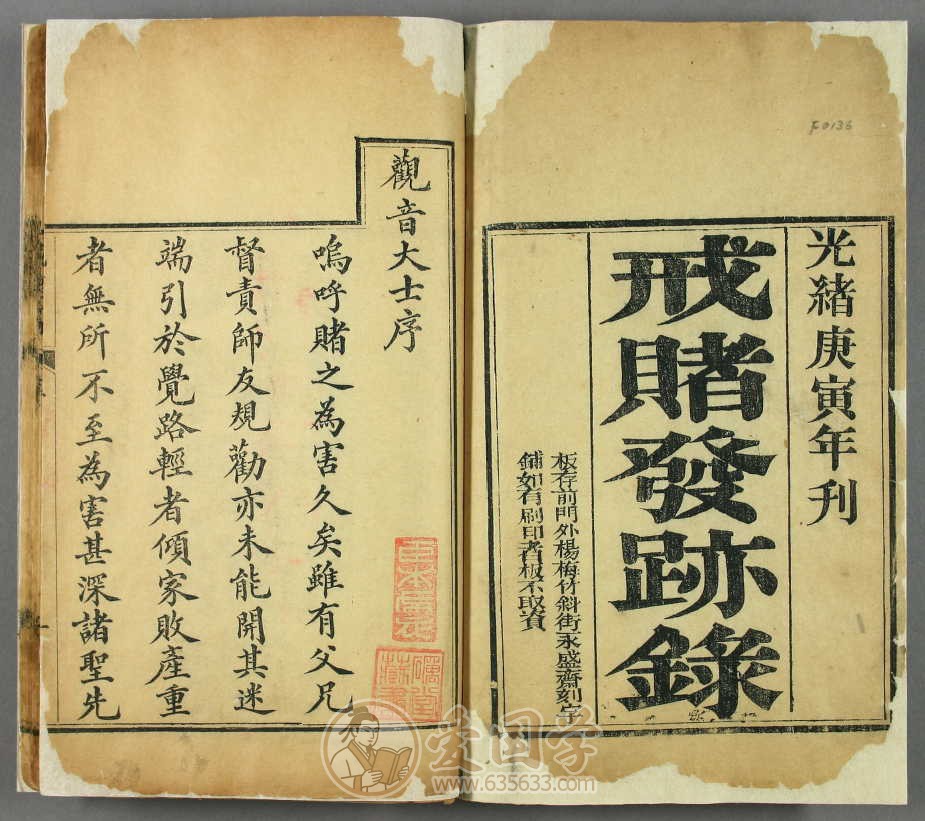 光緒庚寅年刊
戒賭發跡錄
板存前門外楊梅竹斜街永盛齋刻字
鋪如有刷印者板不取資
觀音大士序
嗚呼賭之為害久矣雖有父兄
督責師友規勸亦未能開其迷
端引於覺路輕者傾家敗產重
者無所不至為害甚深諸聖先
藏書
F0136
www.635633.com